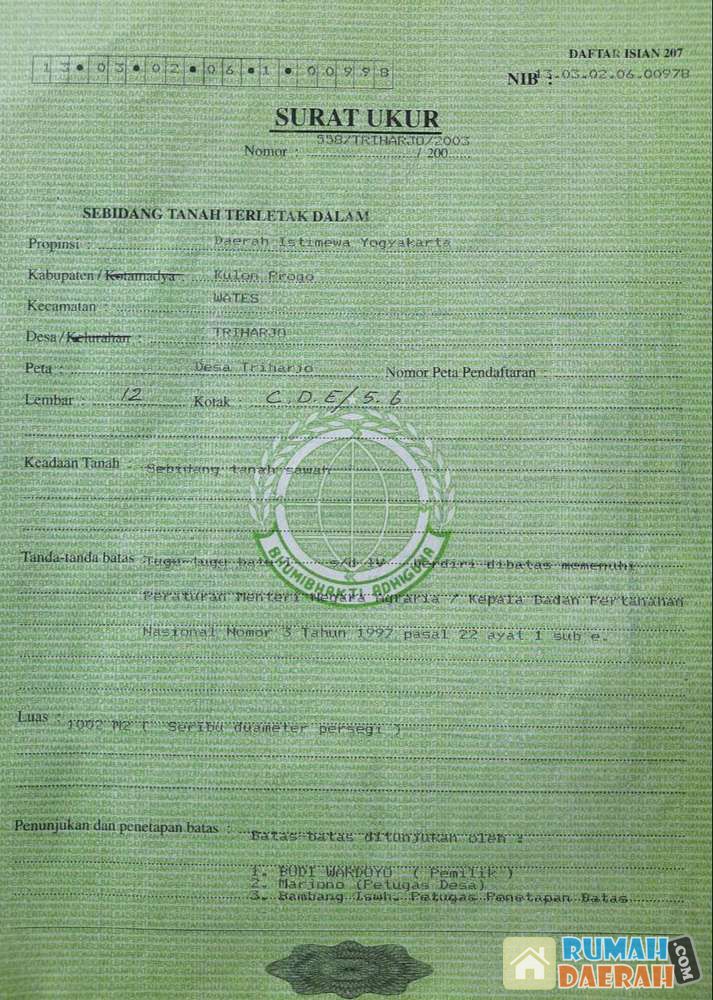 DAFTAR ISIAN 207
13.03.02.06.1.00998
NIB : 13.03.02.06.00978
SURAT UKUR
Nomor : 558/TRIHARJO/2003 / 200
SEBIDANG TANAH TERLETAK DALAM
Propinsi : Daerah Istimewa Yogyakarta
Kabupaten / Kotamadya : Kulon Progo
Kecamatan : WATES
Desa / Kelurahan : TRIHARJO
Peta : Desa Triharjo Nomor Peta Pendaftaran :
Lembar : 12 Kotak : C.D.E/5.6
Keadaan Tanah : Sebidang tanah sawah
BHUMIBHAKTI ADHIGUNA
Tanda-tanda batas : Tugu-tugu batu s/d IV berdiri dibatas memenuhi
Peraturan Menteri Negara Agraria / Kepala Badan Pertanahan
Nasional Nomor 3 Tahun 1997 pasal 22 ayat 1 sub e.
Luas : 1002 M2 ( Seribu duameter persegi )
Penunjukan dan penetapan batas : Batas-batas ditunjukan oleh :
1. BUDI WARDOYO ( Pemilik )
2. Marjono (Petugas Desa)
3. Bambang Iswh. Petugas Penetapan Batas
RUMAH
DAERAH.com